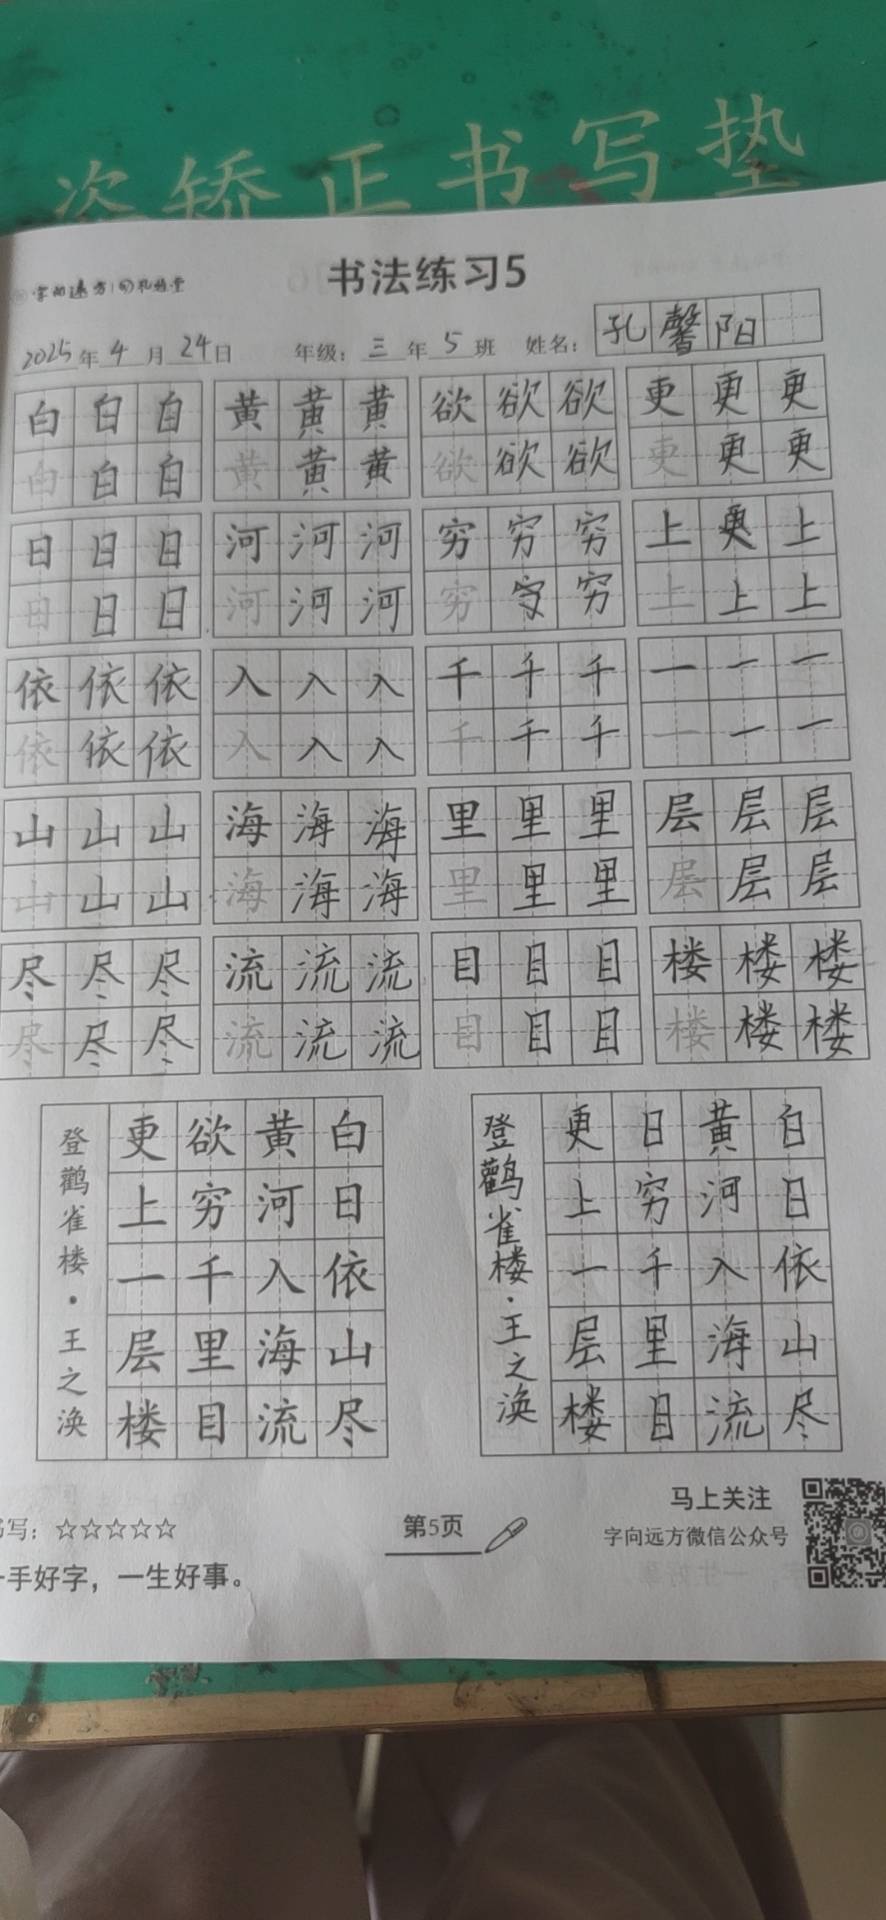 姿矫正书写垫
书法练习5
字向远方
2025年4月24日 年级：三年5班 姓名：孔馨阳
白白白 黄黄黄 欲欲欲 更更更
白白白 黄黄黄 欲欲欲 更更更
日日日 河河河 穷穷穷 上更上
日日日 河河河 穷穷穷 上上上
依依依 入入入 千千千 一一一
依依依 入入入 千千千 一一一
山山山 海海海 里里里 层层层
山山山 海海海 里里里 层层层
尽尽尽 流流流 目目目 楼楼楼
尽尽尽 流流流 目目目 楼楼楼
白日依山尽
黄河入海流
欲穷千里目
更上一层楼
登鹳雀楼·王之涣
白日依山尽
黄河入海流
日穷千里目
更上一层楼
登鹳雀楼·王之涣
书写：☆☆☆☆☆
一手好字，一生好事。
第5页
马上关注
字向远方微信公众号